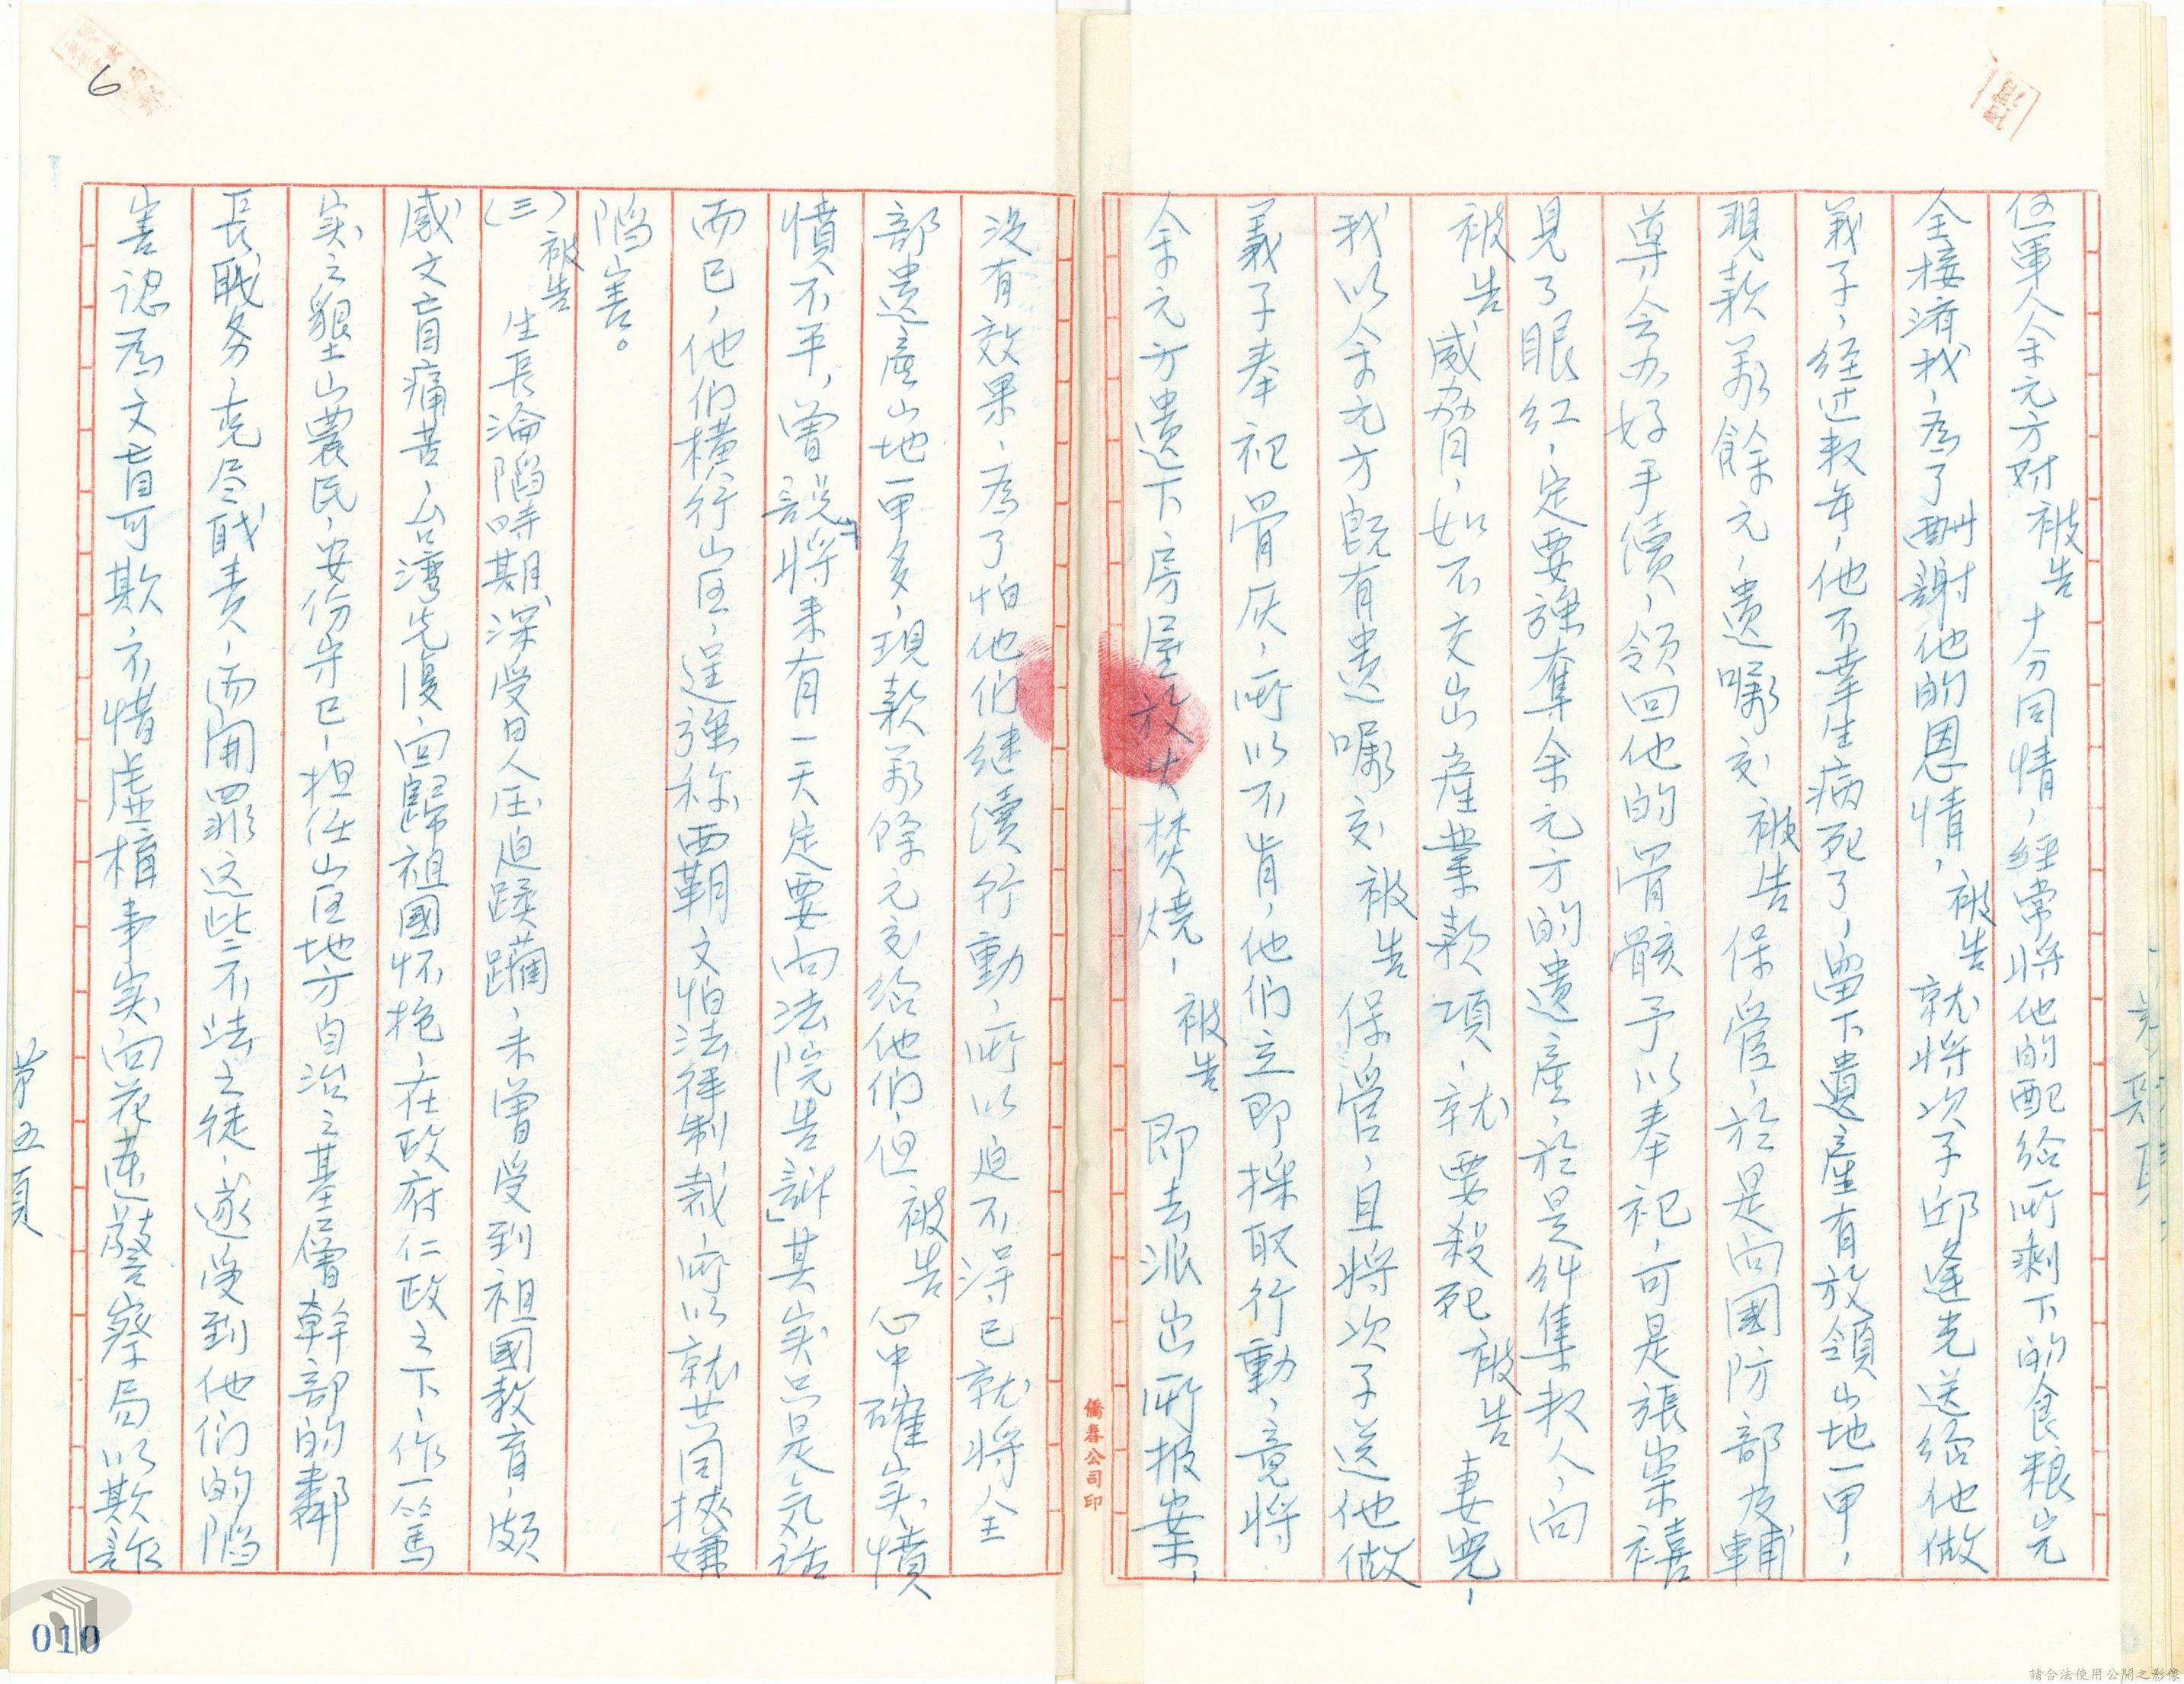 伍軍人余元方对被告十分同情，經常将他的配给所剩下的食粮出完
全接濟我，為了酬謝他的恩情，被告就将次子邱逢光送给他做
義子，经过数年，他不幸生病死了，留下遺產有放領山地一甲，
現款万餘元，遺囑交被告保管，於是向國防部及輔
導会办好手續，领回他的骨骸予以奉祀，可是張崇禧
見了眼红，定要強奪余元方的遺產，於是糾集数人，向
被告威脅，如不交出產業款項，就要殺死被告妻兒，
我以余元方既有遺囑交被告保管，且将次子送他做
義子奉祀骨灰，所以不肯，他们立即採取行動，竟将
余元方遺下房屋放火焚燒，被告即去派出所报案，
没有效果，為了怕他们继续行動，所以迫不得已就将全
部遺產山地一甲多，現款万餘元交给他们，但被告心中確实憤
憤不平，曾說「将来有一天定要向法院告訴」其实只是气话
而已，他们横行山区，逞強称西霸，又怕法律制裁所以就共同挾嫌
陷害。
(三)被告生長淪陷時期深受日人压迫蹂躪，未曾受到祖國教育，頗
感文盲痛苦，台湾光復，回歸祖國怀抱，在政府仁政之下，作一篤
实之墾山農民，安份守己，担任山区地方自治之基層幹部的鄰
長，職务，克尽職责，而開罪这些不法之徒，遂受到他们的陷
害認為文盲可欺，不惜虛構事实向花蓮警察局以欺詐
第五頁
6
010
僑春公司印
請合法使用公開之影像